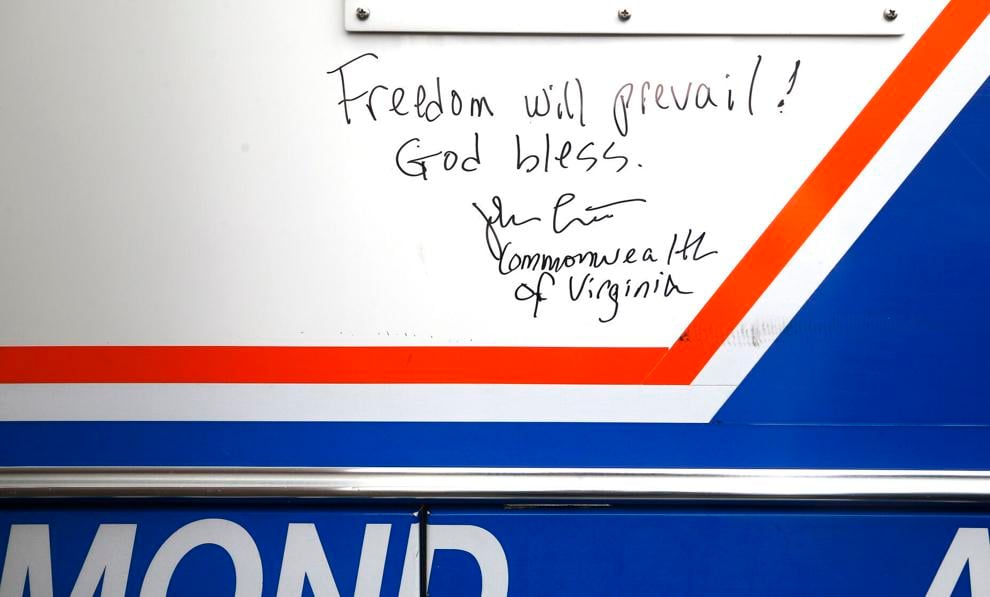 Freedom will prevail!
God bless.
John
Commonwealth
of Virginia
MOND
A